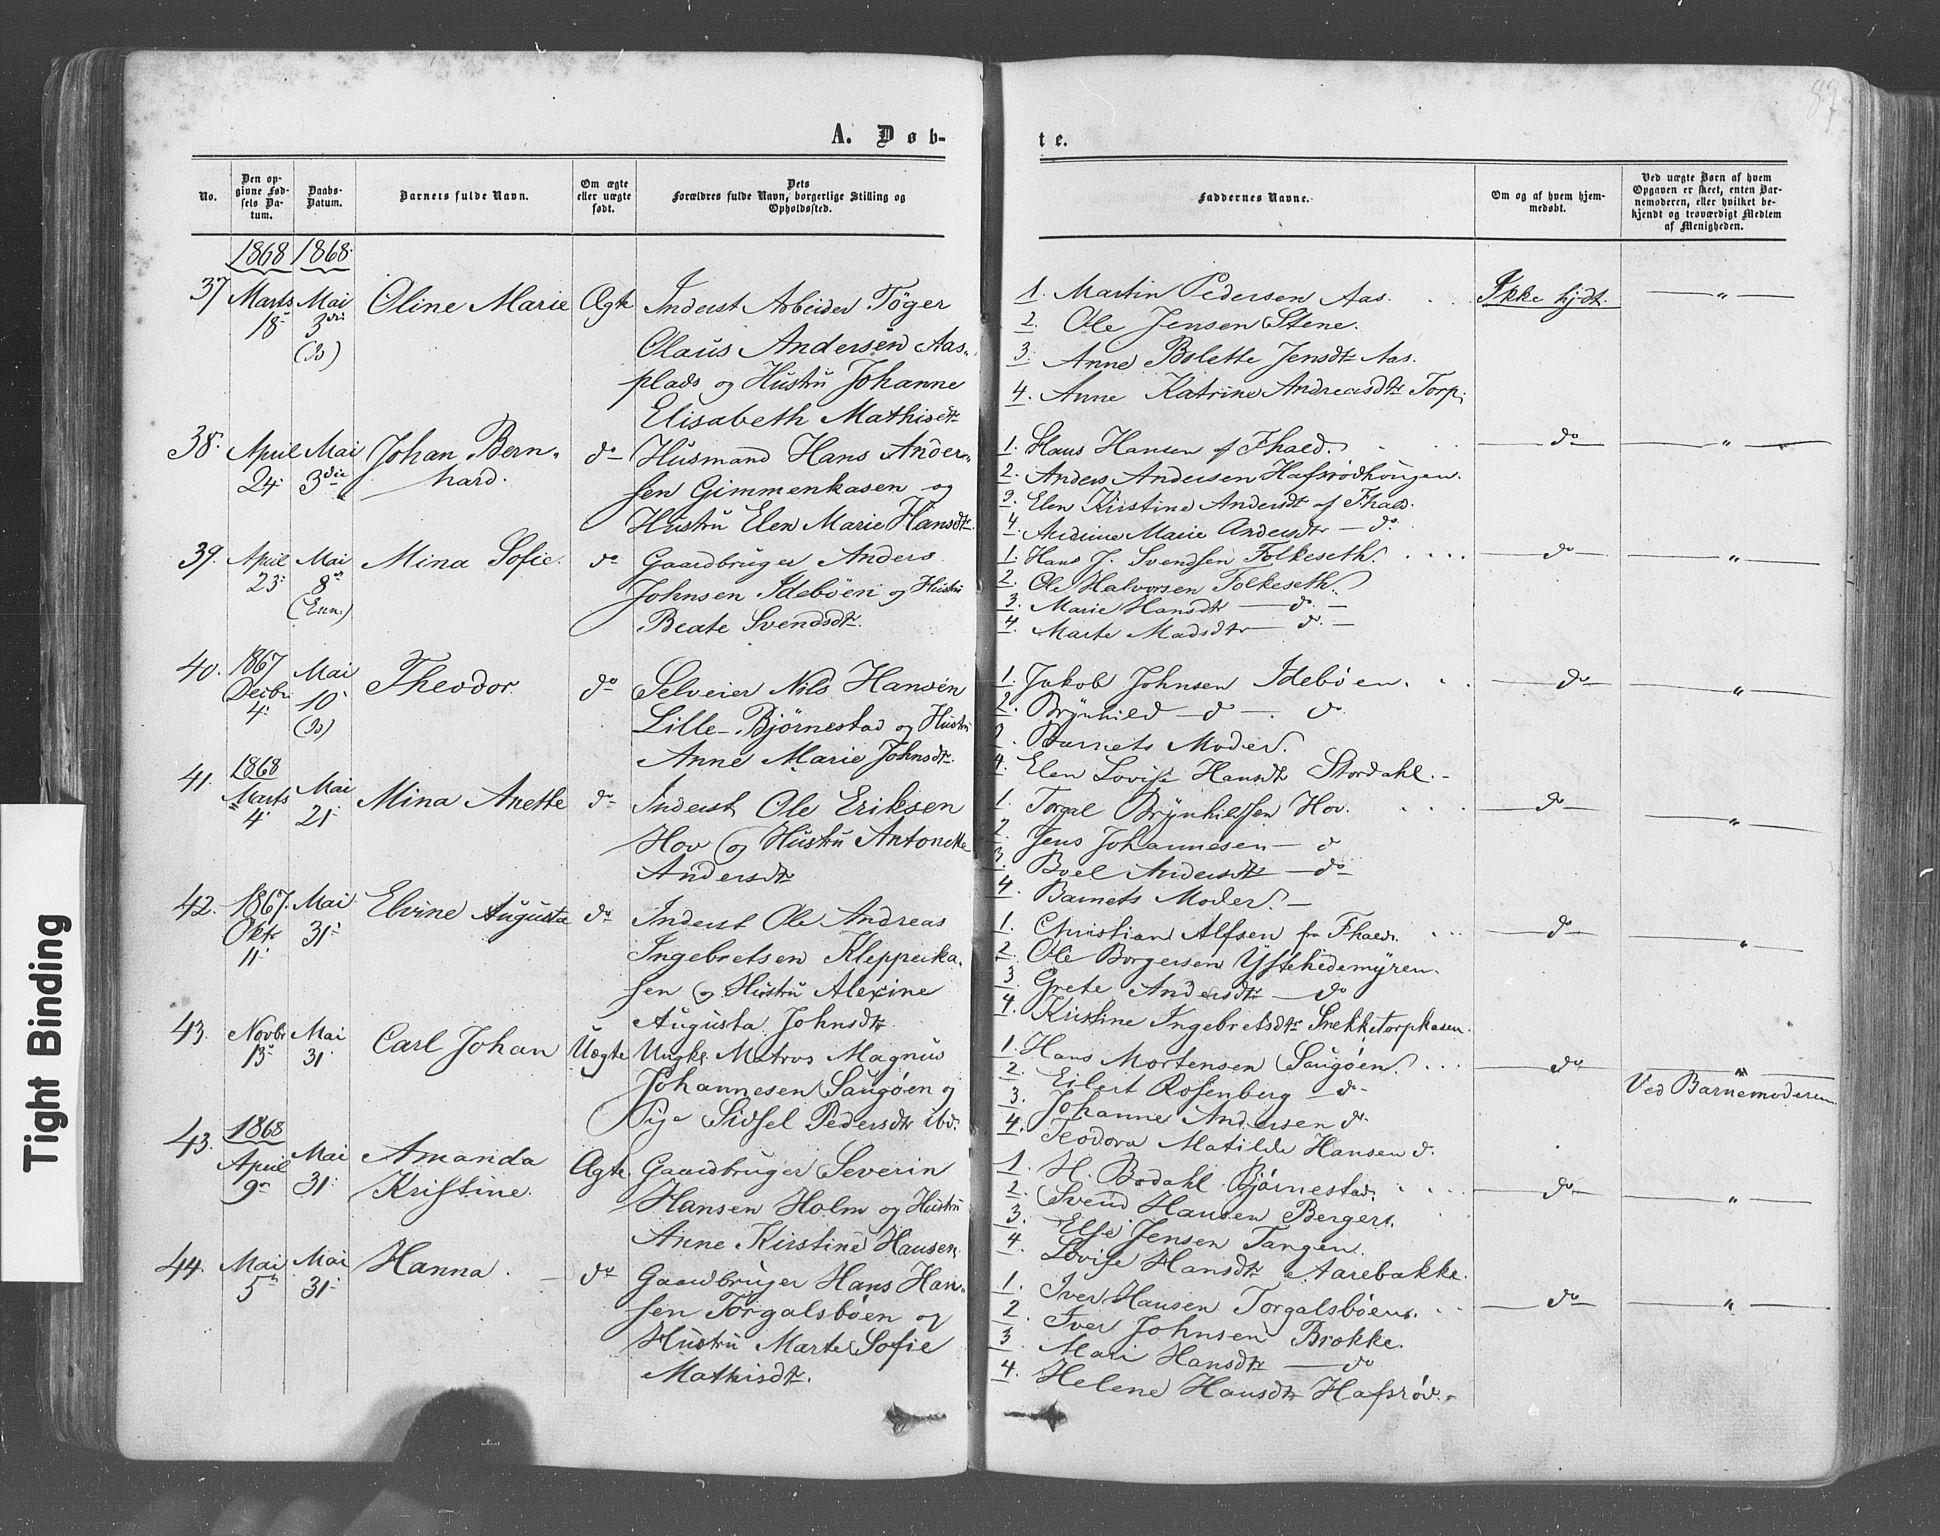 87
A. Døb-
te.
No.
Den op-
givne Fød-
sels Da-
tum.
Daabs-
Datum.
Barnets fulde Navn.
Om ægte
eller uægte
født.
Dets
Forældres fulde Navn, borgerlige Stilling og
Opholdssted.
Faddernes Navne.
Om og af hvem hjem-
medøbt.
Ved uægte Børn af hvem
Opgaven er skeet, enten Bar-
nemoderen, eller hvilket be-
kjendt og troværdigt Medlem
af Menigheden.
1868 1868
37 Marts 18 Mai 3die (Is) Oline Marie Ægte
Inderst Arbeider Töger
Claus Andersen Aas-
plads og Hustru Johanne
Elisabeth Mathisdtr
1. Martin Pedersen Aas.
2. Ole Jensen Stene.
3. Anne Bolette Jensdtr Aas.
4. Anne Katrine Andreasdtr Torp.
Ikke hjdt. "
38. April 24 Mai 3die Johan Bern-
hard. do
Husmand Hans Ander-
sen Gimmenkasen og
Hustru Elen Marie Hansdtr
1. Hans Hansen af Fhald.
2. Anders Andersen Hafsrødkongen.
3. Elen Kirstine Andersdt af Fhald.
4. Andrine Marie Andersdtr do
do "
39. April 23 Mai 8 (Enn.) Mina Sofie. do
Gaardbruger Anders
Johnsen Idebøen og Hustru
Beate Svendsdtr.
1. Hans J. Svendsen Folkeseth.
2. Ole Halvorsen Folkeseth.
3. Marie Hansdtr do
4. Marte Madsdtr d.
do "
40. 1867 Decbr 4 Mai 10 (Is) Theodor do
Selveier Nils Hansen
Lille-Bjørnestad og Hustru
Anne Marie Johnsdtr.
1. Jakob Johnsen Idebøen.
2. Brynhild do do
3. Barnets Moder.
4. Elen Lovise Hansdtr Stordahl.
do "
41. 1868 Marts 4 Mai 21 Mina Anette do
Inderst Ole Eriksen
Hov og Hustru Antonette
Andersdtr
1. Torgal Brynhildsen Hov.
2. Jens Johannesen d
3. Boel Andersdtr do
4. Barnets Moder.
do "
42. 1867. Oktr 11 Mai 31 Elvine Augusta do
Inderst Ole Andreas
Ingebretsen Kleppeka-
sen og Hustru Alexine
Augusta Johnsdtr
1. Christian Alfsen fra Fhald.
2. Ole Borgersen Ystehedemyren.
3 Grete Andersdtr do
4. Kristine Ingebretsdtr Snekketorpkasen.
do "
43. Novbr 13 Mai 31 Carl Johan Uægte
Ungk. Matros Magnus
Johannesen Saugøen og
Pige Sidsel Pedersdtr ibd.
1. Hans Mortensen Saugøen.
2. Eilert Rosenberg d
3. Johanne Andersen d.
4. Teodora Matilde Hansen d.
do "
Ved Barnemoderen
43. 1868 April 9 Mai 31 Amanda
Kristine. Ægte
Gaardbruger Severin
Hansen Holm og Hustru
Anne Kirstine Hansen
1. H. Bodahl Bjørnestad.
2. Svend Hansen Berger.
3. Else Jensen Tangen.
4. Lovise Hansdtr Aarebakke.
do "
44. Mai 5 Mai 31 Hanna. do
Gaardbruger Hans Han-
sen Torgalsbøen og
Hustru Marte Sofie
Mathisdtr.
1. Iver Hansen Torgalsbøen.
2. Iver Johnsen Brokke.
3 Mari Hansdtr do
4. Helene Hansdtr Hafsrød.
do "
Tight Binding